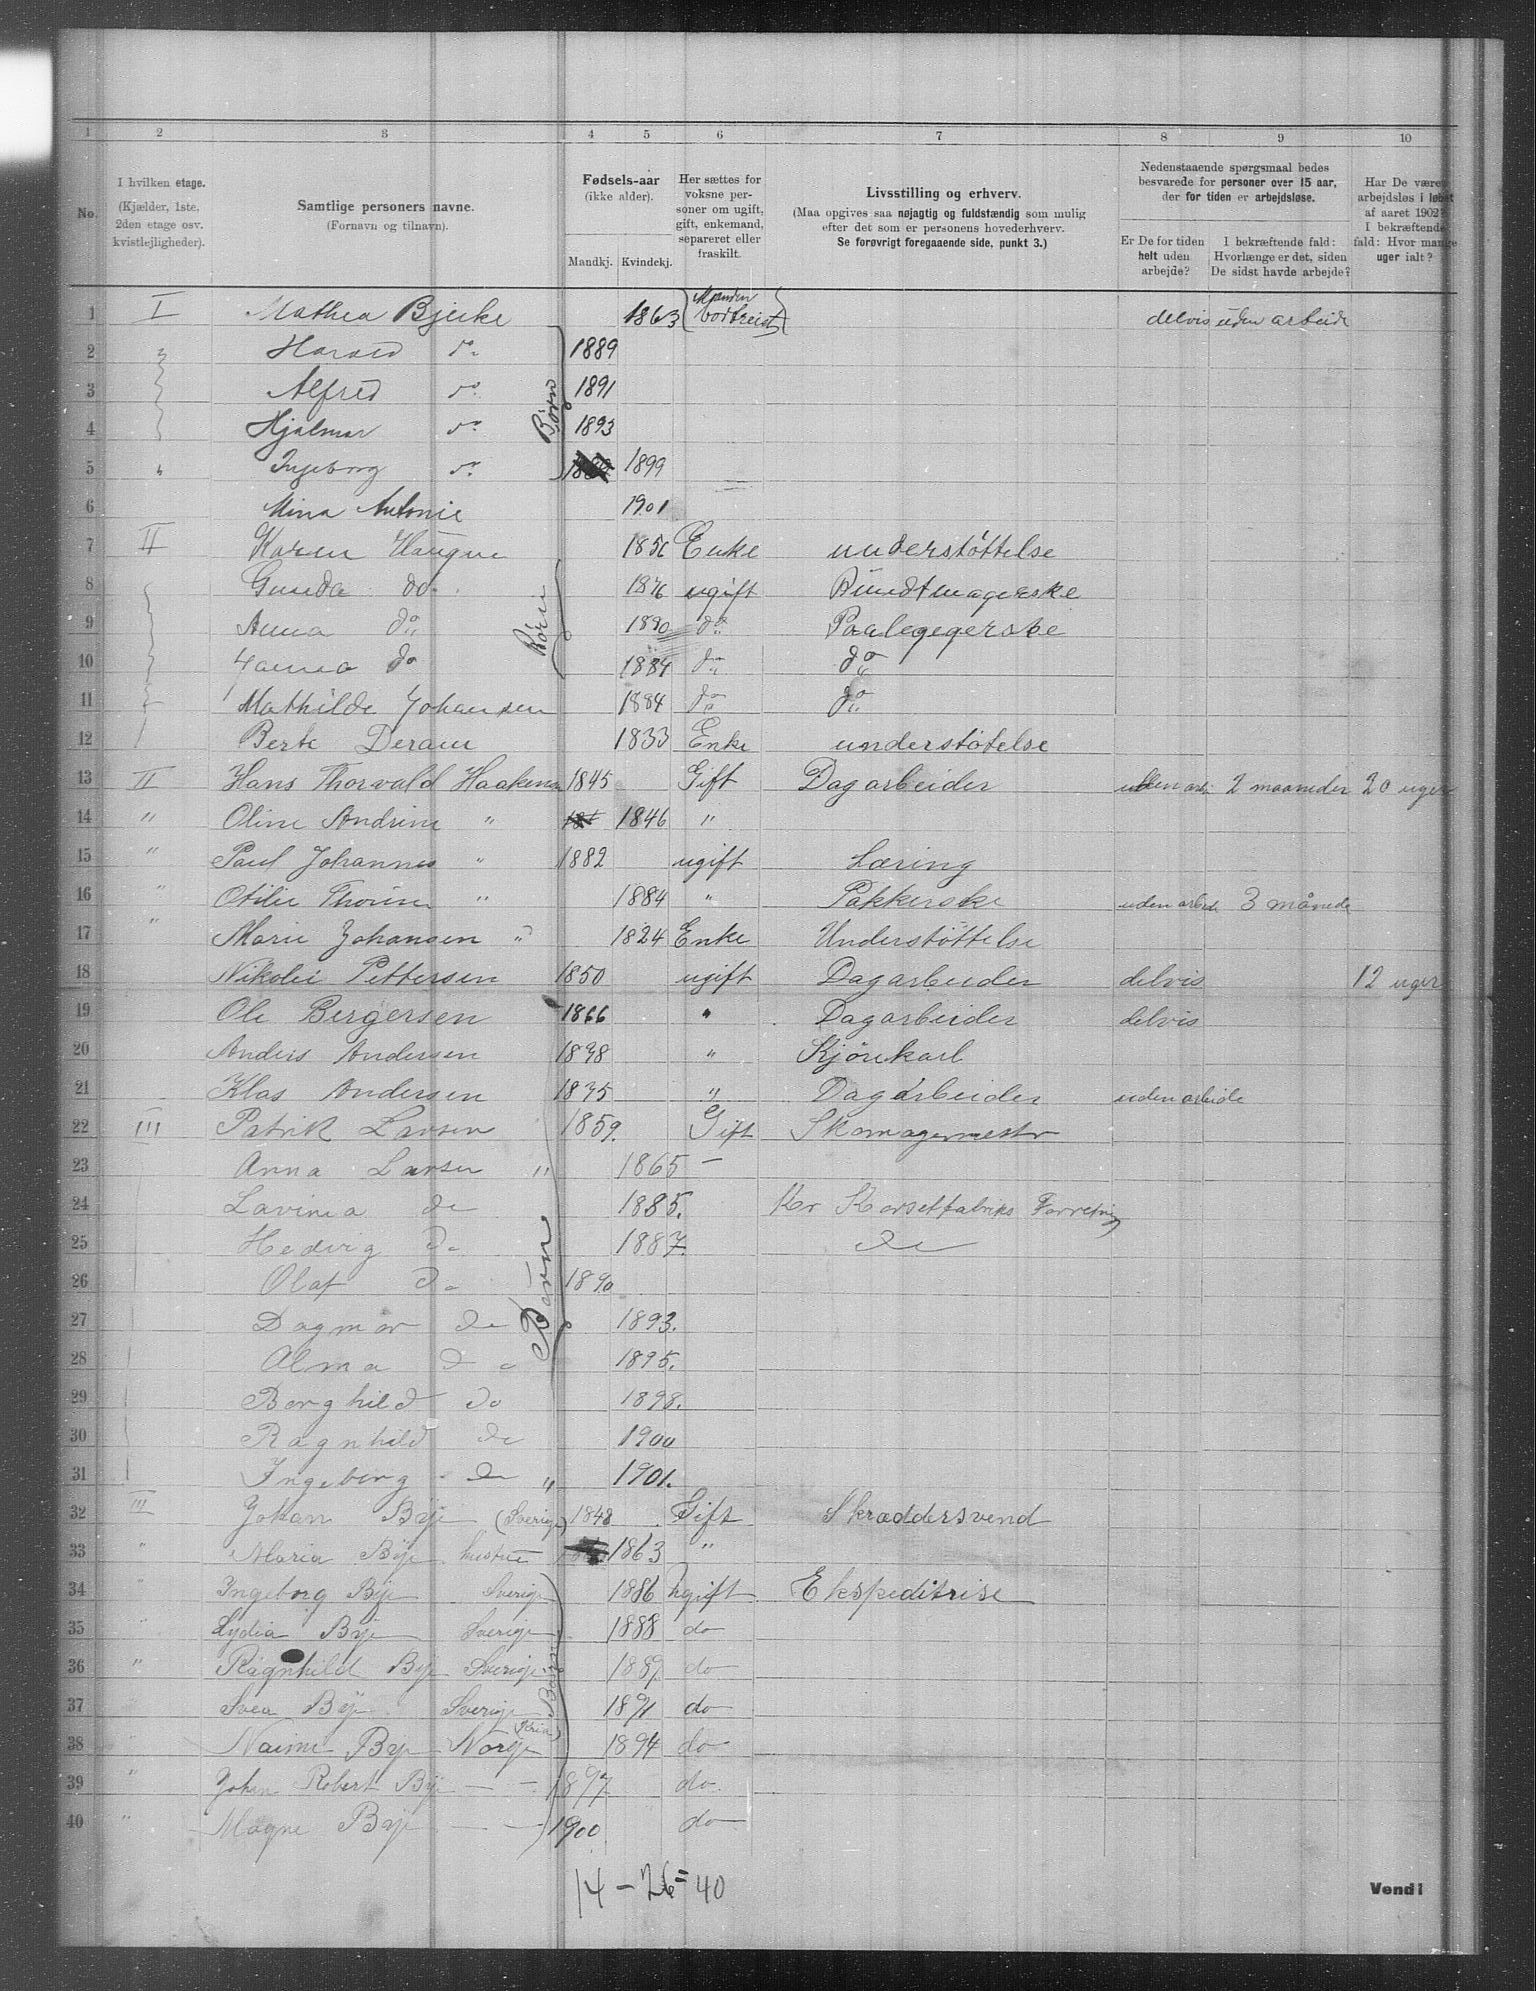 1 2 3 4 5 6 7 8 9 10
No.
I hvilken etage.
(Kjælder, 1ste, 2den etage osv. kvistlejligheder).
Samtlige personers navne.
(Fornavn og tilnavn).
Fødsels-aar
(ikke alder).
Mandkj. Kvindekj.
Her sættes for voksne personer om ugift, gift, enkemand, separeret eller fraskilt.
Livsstilling og erhverv.
(Maa opgives saa nøjagtig og fuldstændig som mulig efter det som er personens hovederhverv.
Se forøvrigt foregaaende side, punkt 3.)
Nedenstaaende spørgsmaal bedes besvarede for personer over 15 aar, der for tiden er arbejdsløse.
Er De for tiden helt uden arbejde?
I bekræftende fald: Hvorlænge er det, siden De sidst havde arbejde?
Har De været arbejdsløs i løbet af aaret 1902? I bekræftende fald: Hvor mange uger ialt?
1 I Mathea Bjerke 1863 Manden bortreist delvis uden arbeide
2 " Harald do 1889
3 Alfred do 1891
4 Hjalmar do 1893
Børn
5 " Ingeborg do 1899
6 Mina Antonie 1901
7 II Karen Haugne 1856 Enke understøttelse
8 Gunda do 1876 ugift Bundtmagerske
9 Anna do 1890 do Paalegegerske
Børn
10 do 1884 do do
11 Mathilde Johansen 1884 do do
12 Berte 1833 Enke understøtelse
13 II Hans Thorvald Haakensen 1845 Gift Dagarbeider uden arb. 2 maaneder 20 uger
14 " Oline Andrine " 1846 "
15 " Paul Johannes " 1882 ugift Læring
16 " Otilie " 1884 " Pakkerske uden arbeide 3 månede
17 " Marie Johansen " 1824 Enke Understøttelse
18 Nikolai Pettersen 1850 ugift Dagarbeider delvis 12 uger
19 Ole Bergersen 1866 " Dagarbeider delvis
20 Anders Andersen 1898 " Kjørekarl
21 Klas Andersen 1875 " Dagarbeider uden arbeide
22 III Patrik Larsen 1859. Gift Skomagermestr
23 Anna Larsen " 1865 –
24 Lavinia do 1885. Kr Korsetfabriks Forretning
25 Hedvig do 1887. do
26 Olaf do 1890
Børn
27 Dagmar do 1893.
28 Alma do 1895.
29 Borghild do 1898.
30 Ragnhild do 1900
31 Ingeborg do " 1901.
32 III Johan Bye (Sverige) 1848 Gift Skræddersvend
33 " Maria Bye hustru 1863 "
34 " Ingeborg Bye Sverige 1886 ugift Ekspeditrise
35 " Lydia Bye Sverige 1888 do
36 " Ragnhild Bye Sverige 1889 do
Børn
37 Svea Bye Sverige 1891 do
38 Naimi Bye Norge (Kria) 1894 do
39 " Johan Robert Bye – – 1897 do
40 " Magne Bye – – 1900 do
14 – 26 = 40
Vend!